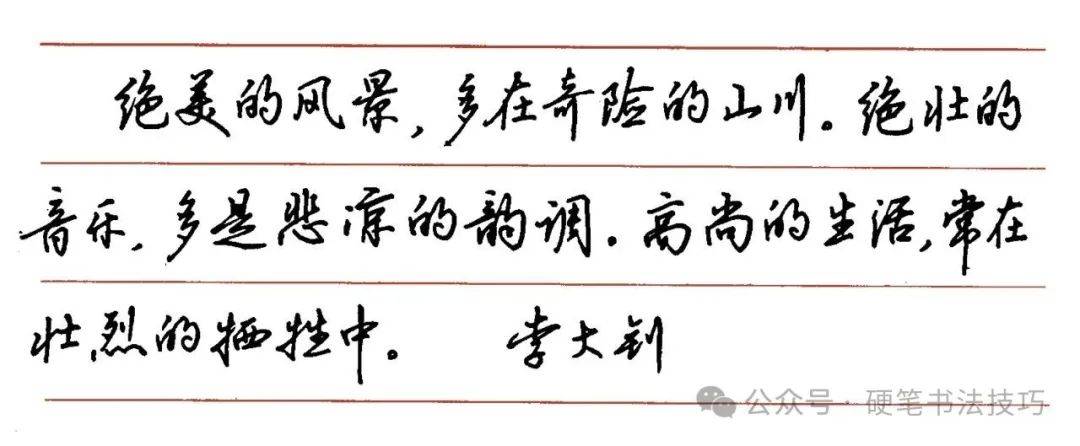 绝美的风景,多在奇险的山川。绝壮的
音乐,多是悲凉的韵调。高尚的生活,常在
壮烈的牺牲中。 李大钊
公众号·硬笔书法技巧